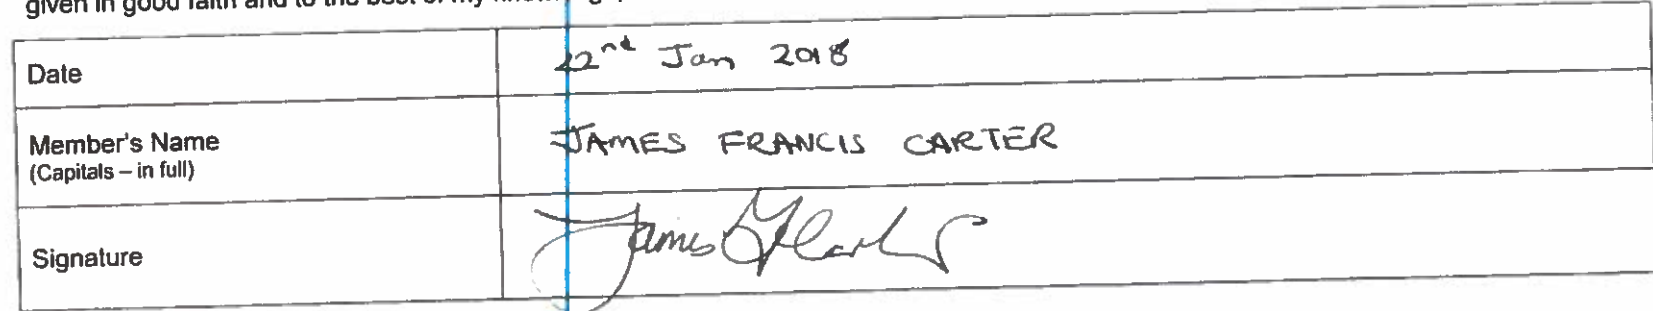 given in good faith and to the best of my
Date
22nd Jan 2018
Member's Name
(Capitals – in full)
JAMES FRANCIS CARTER
Signature
James F Carter